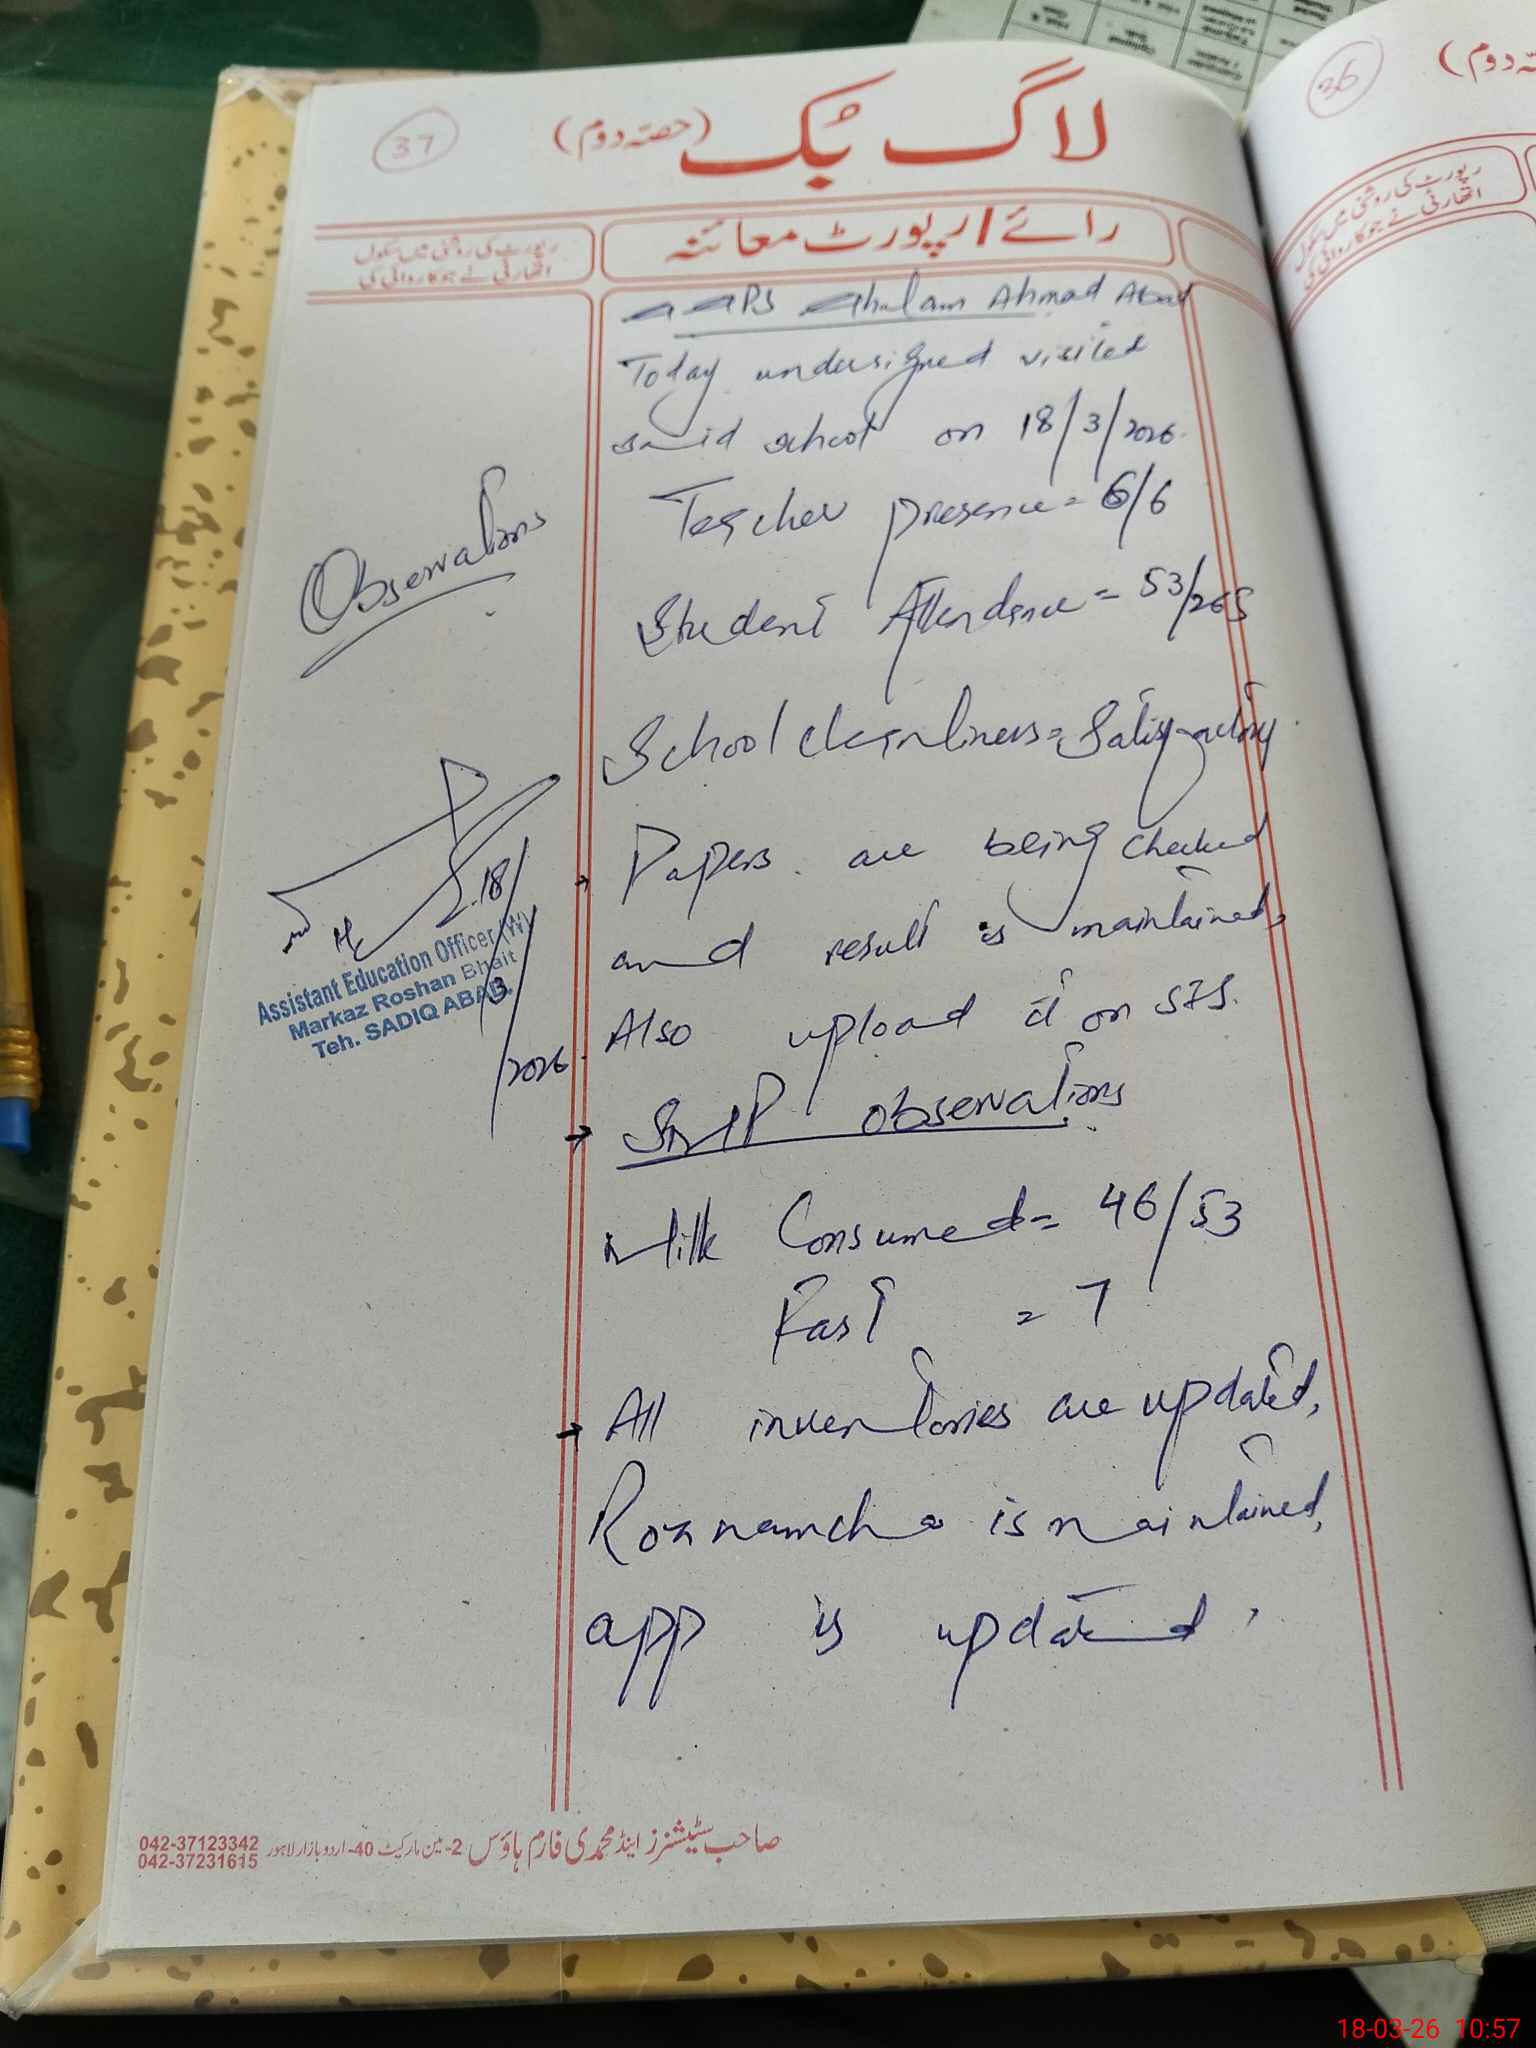 37
لاگ بک (حصہ دوم)
رائے / رپورٹ معائنہ
رپورٹ کی روشنی میں سکول
اتھارٹی نے جو کاروائی کی
GGPS Ghulam Ahmad Abad
Today undersigned visited
said school on 18/3/2026.
Teacher presence = 6/6
Student Attendence = 53/265
School cleanliness = Satisfactory.
Papers are being checked
and result is maintained,
Also upload it on SIS.
SMP observations
Milk Consumed = 46/53
Fast = 7
All inventories are updated,
Roznamcha is maintained,
app is updated.
Observations
18/3/2026
Assistant Education Officer (W)
Markaz Roshan Bhait
Teh. SADIQ ABAD.
صاحب سٹیشنرز اینڈ محمدی فارم ہاؤس 2- مین مارکیٹ 40- اردو بازار لاہور
042-37123342
042-37231615
36
حصہ دوم)
رپورٹ کی روشنی میں سکول
اتھارٹی نے جو کاروائی کی
18-03-26 10:57